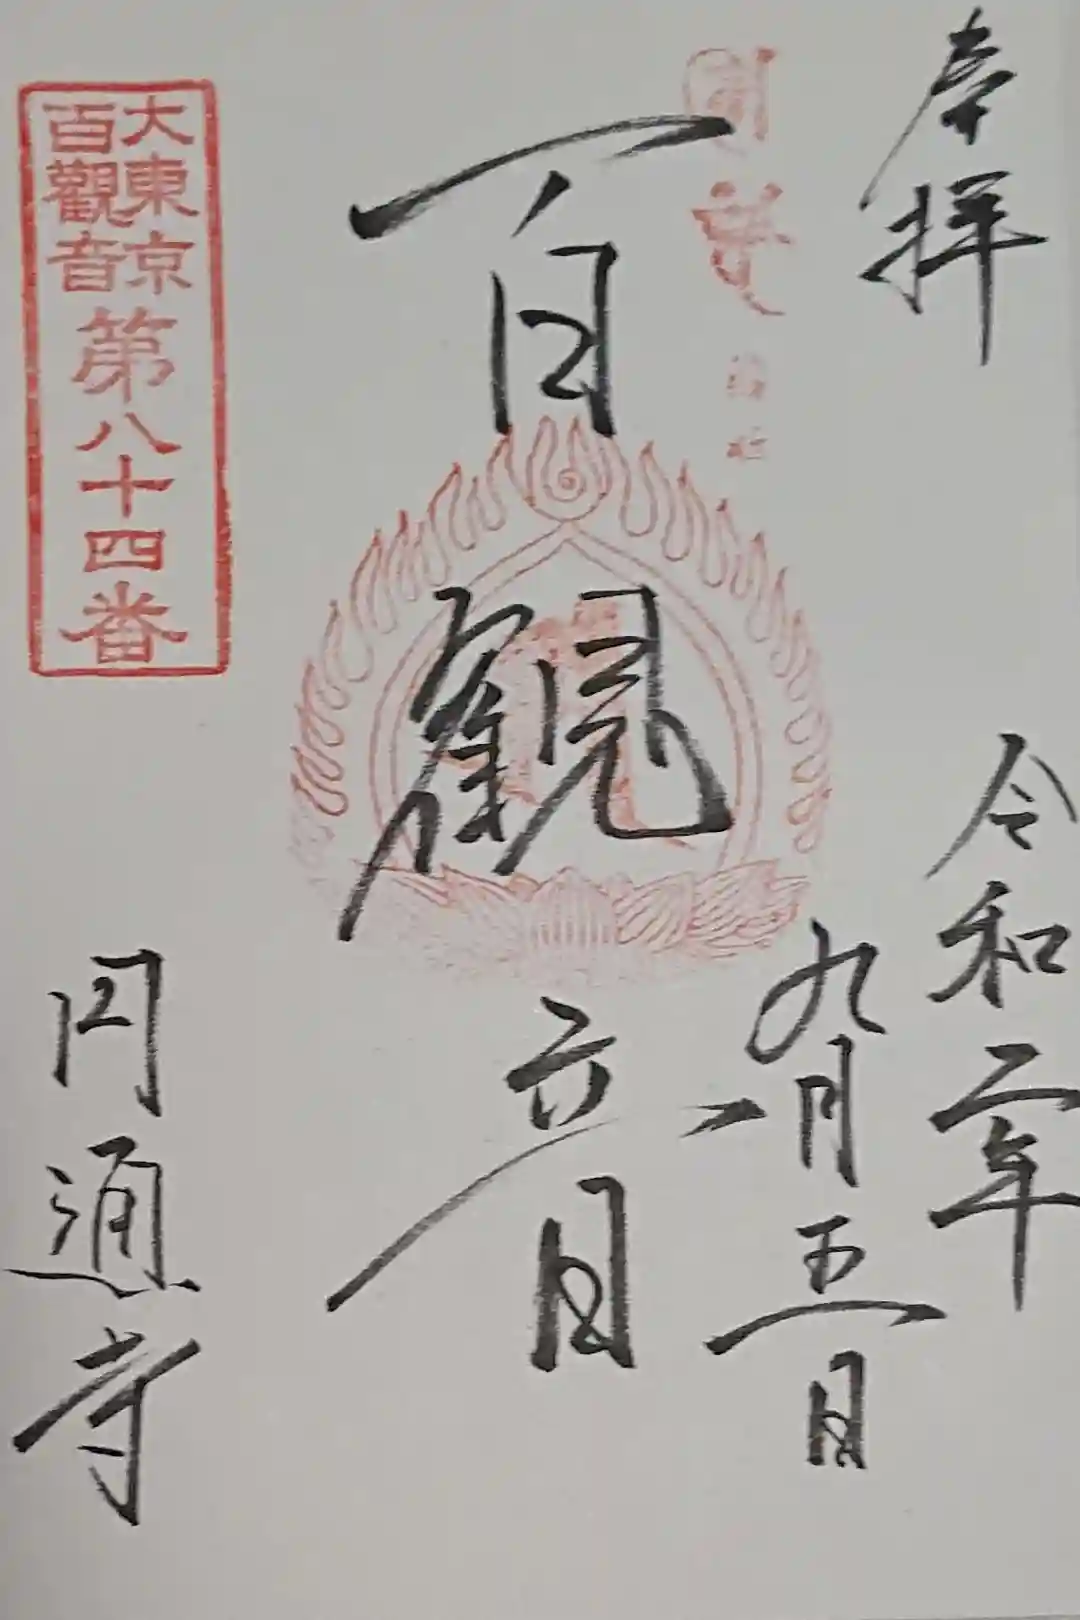 奉拝
令和二年
九月五日
百觀音
大東京
百觀音
第八十四番
円通寺